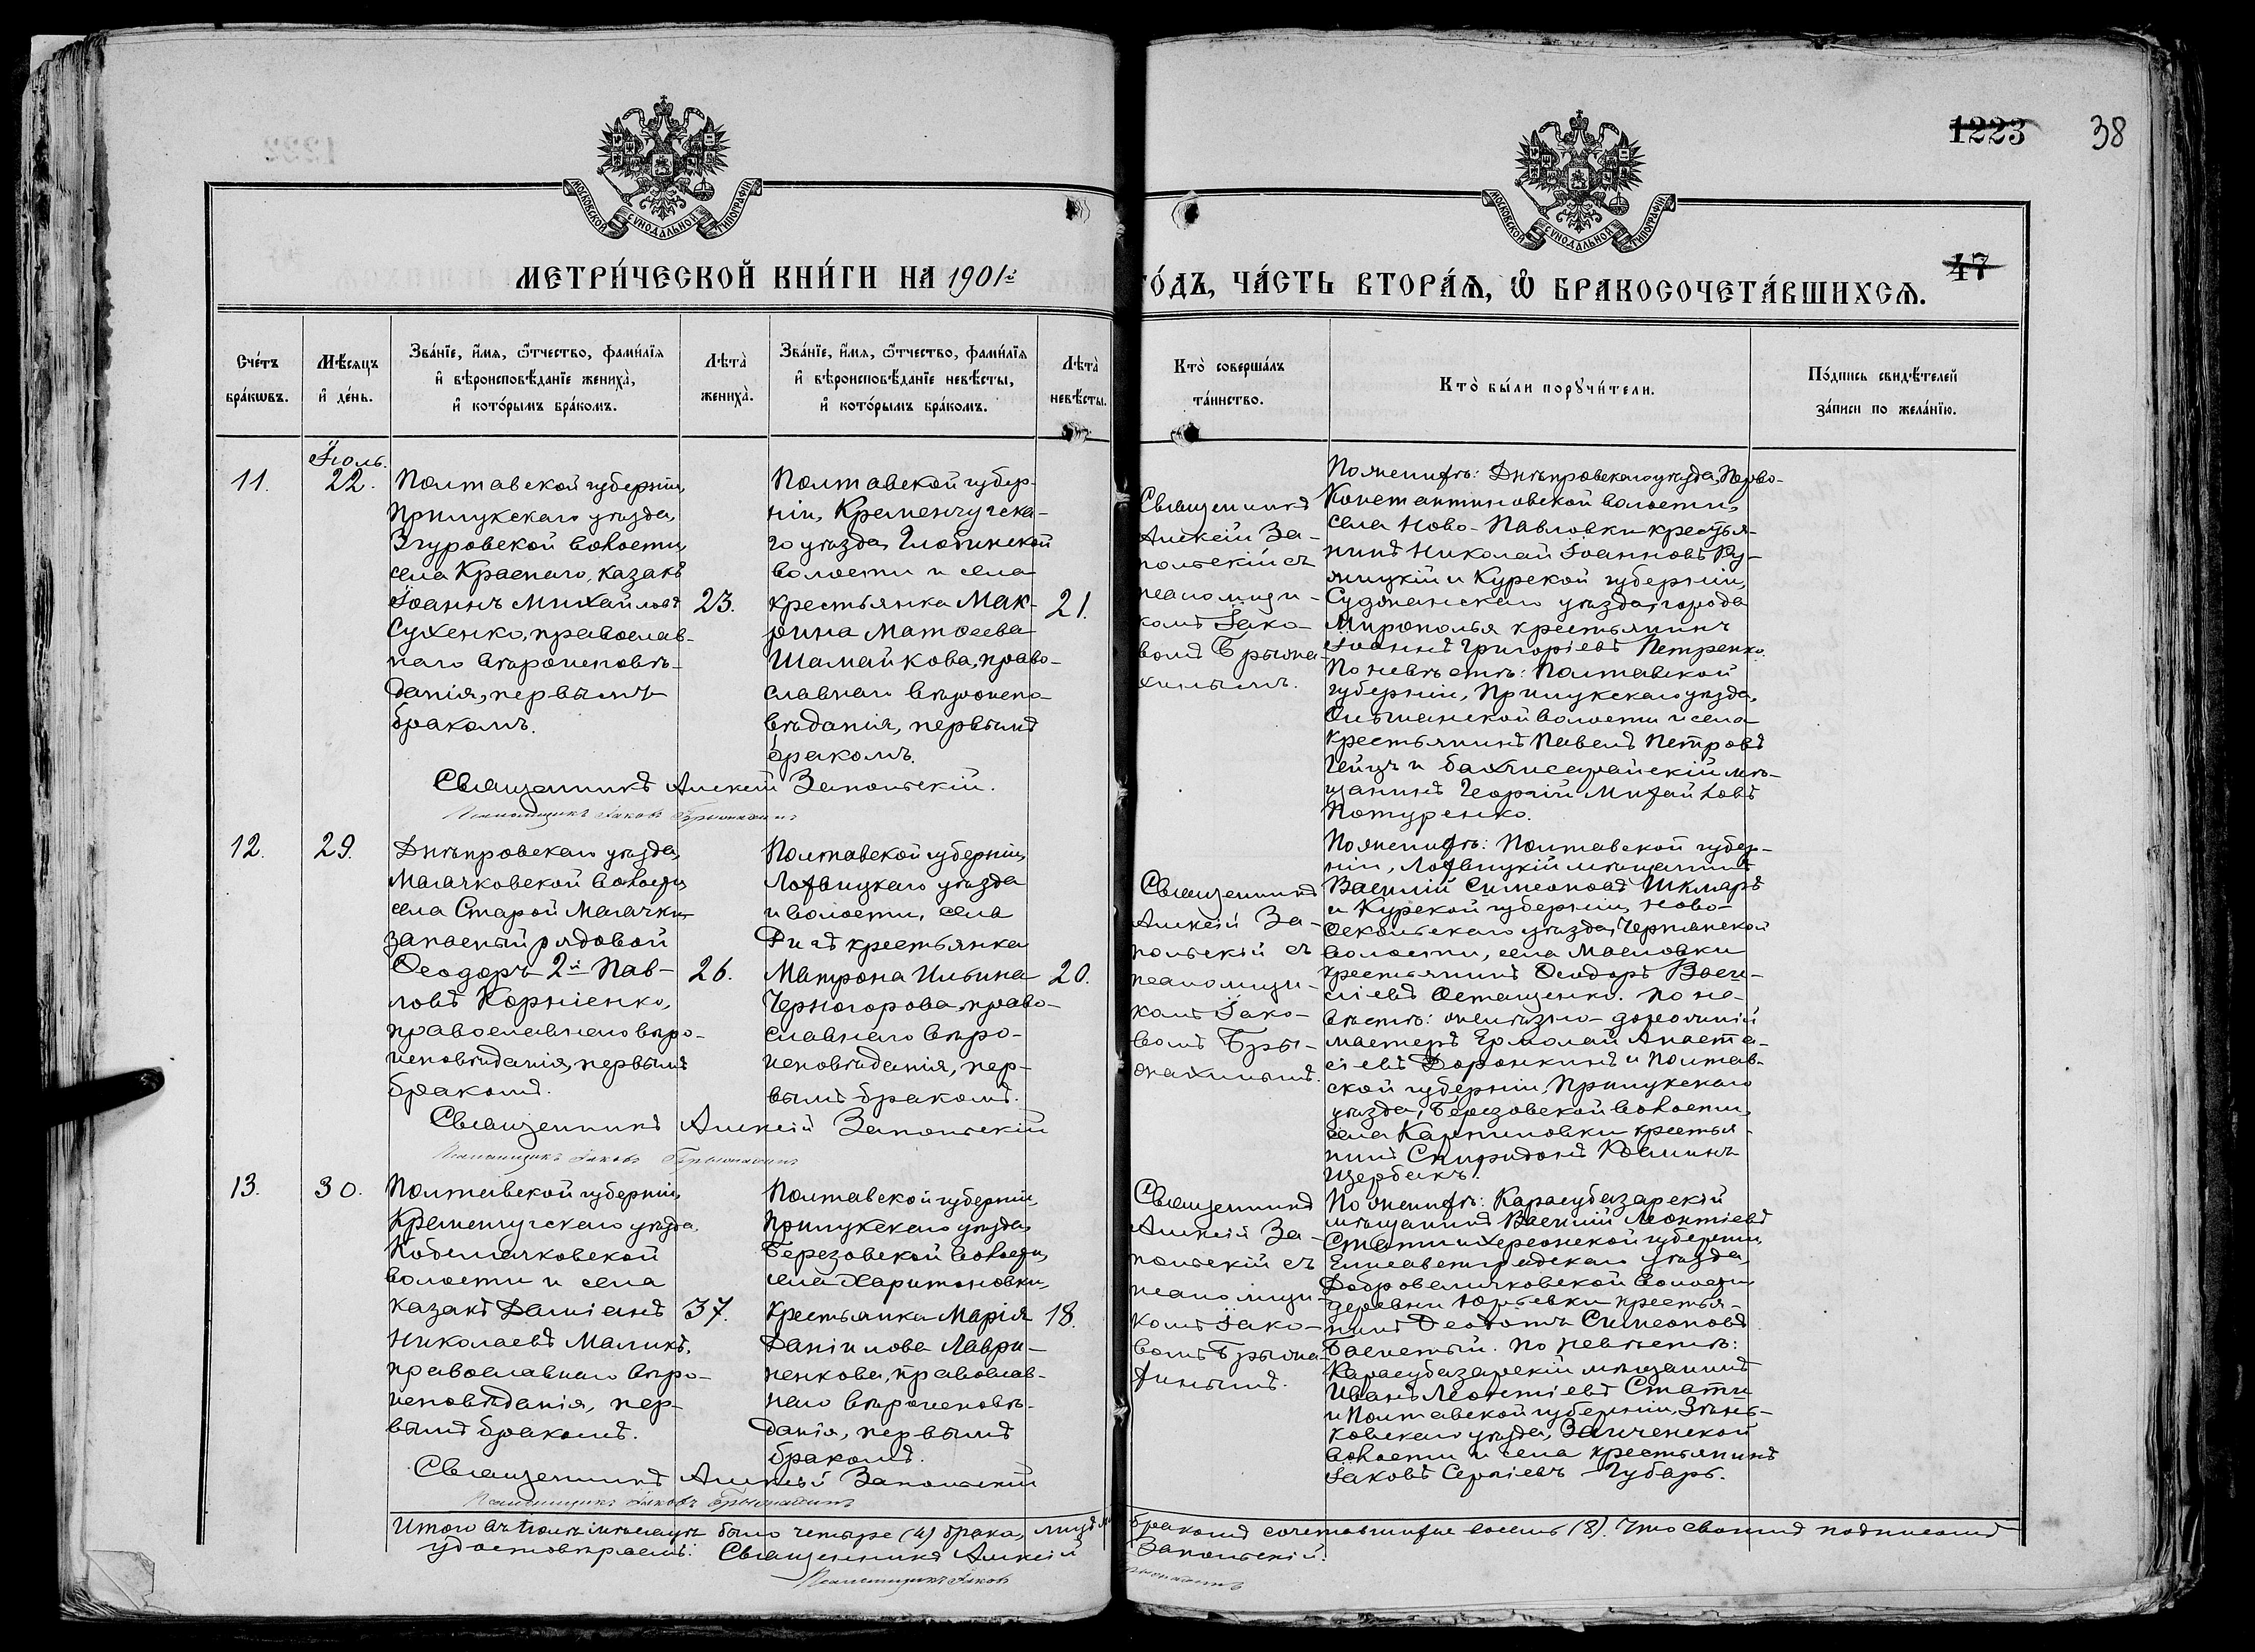 1223 38
МОСКОВСКОЙ СУНОДАЛЬНОЙ ТИПОГРАФІИ
МОСКОВСКОЙ СУНОДАЛЬНОЙ ТИПОГРАФІИ
47
МЕТРИ́ЧЕСКОЙ КНИ́ГИ НА 1901й
ГО́ДЪ, ЧА́СТЬ ВТОРА́Ѧ, Ѽ БРАКОСОЧЕТА́ВШИХСѦ.
Сче́тъ
бра́кѡвъ.
Мѣ́сяцъ
и҆ де́нь.
Зва́нїе, и҆́мѧ, ѻ҆́тчество, фами́лїѧ
и҆ вѣроисповѣ́данїе жениха̀,
и҆ кото́рымъ бра́комъ.
Лѣта̀
жениха̀.
Зва́нїе, и҆́мѧ, ѻ҆́тчество, фами́лїѧ
и҆ вѣроисповѣ́данїе невѣ́сты,
и҆ кото́рымъ бра́комъ.
Лѣта̀
невѣ́сты.
Кто̀ соверша́лъ
та́инство.
Кто̀ бы́ли порꙋчи́тели.
По́дпись свидѣ́телей
за́писи по жела́нїю.
11.
Іюль.
22.
Полтавской губерніи,
Прилукскаго уѣзда,
Згуровской волости,
села Краснаго, казакъ
Іоаннъ Михайловъ
Сухенко, православ-
наго вѣроисповѣ-
данія, первымъ
бракомъ.
23.
Полтавской губер-
ніи, Кременчугска-
го уѣзда, Глобинской
волости и села
крестьянка Мак-
рина Матѳеева
Шамайкова, право-
славнаго вѣроиспо-
вѣданія, первымъ
бракомъ.
21.
Священникъ
Алексій За-
польскій съ
псаломщи-
комъ Іако-
вомъ Брыжа-
хинымъ.
По женихѣ: Днѣпровскаго уѣзда, Перво-
Константиновской волости,
села Ново-Павловки крестья-
нинъ Николай Іоанновъ Ру-
жицкій и Курской губерніи,
Суджанскаго уѣзда, города
Мирополья крестьянинъ
Іоаннъ Григоріевъ Петренко.
По невѣстѣ: Полтавской
губерніи, Прилукскаго уѣзда,
Ольшанской волости и села
крестьянинъ Павелъ Петровъ
Гейцъ и бахчисарайскій мѣ-
щанинъ Георгій Михайловъ
Потуренко.
Священникъ Алексій Запольскій.
Псаломщикъ Іаковъ
12.
29.
Днѣпровскаго уѣзда,
Маячковской волости,
села Старой Маячки,
запасный рядовой
Ѳеодоръ 2й Пав-
ловъ Корніенко,
православнаго вѣро-
исповѣданія, первымъ
бракомъ.
26.
Полтавской губерніи,
Лохвицкаго уѣзда
и волости, села
крестьянка
Матрона Ильина
Черногорова, право-
славнаго вѣро-
исповѣданія, пер-
вымъ бракомъ.
20.
Священникъ
Алексій За-
польскій съ
псаломщи-
комъ Іако-
вомъ Бры-
жахинымъ.
По женихѣ: Полтавской губер-
ніи, Лохвицкій мѣщанинъ
Василій Симеоновъ Шкляръ
и Курской губерніи, Ново-
Оскольскаго уѣзда, Чернянской
волости, села Масловки
крестьянинъ Ѳеодоръ Васи-
ліевъ Осташенко. По не-
вѣстѣ: желѣзно-дорожный
мастеръ Ермолай Анаста-
сіевъ Доронкинъ и Полтав-
ской губерніи, Прилукскаго
уѣзда, Березовской волости,
села Карпиловки крестья-
нинъ Спиридонъ Козминъ
Щербакъ.
Священникъ Алексій Запольскій
Псаломщикъ Іаковъ
13.
30.
Полтавской губерніи,
Кременчугскаго уѣзда,
Кобелячковской
волости и села
казакъ Даміанъ
Николаевъ Маликъ,
православнаго вѣро-
исповѣданія, пер-
вымъ бракомъ.
37.
Полтавской губерніи,
Прилукскаго уѣзда,
Березовской волости,
села Харитоновки,
крестьянка Марія
Даніилова Лаври-
ненкова, православ-
наго вѣроисповѣ-
данія, первымъ
бракомъ.
18.
Священникъ
Алексій За-
польскій съ
псаломщи-
комъ Іако-
вомъ Брыжа-
хинымъ.
По женихѣ: Карасубазарскій
мѣщанинъ Василій Леонтіевъ
Стати и Херсонской губерніи,
Елисаветградскаго уѣзда,
Добровеличковской волости,
деревни Юрьевки крестья-
нинъ Ѳеодотъ Симеоновъ
По невѣстѣ:
Карасубазарскій мѣщанинъ
Иванъ Леонтіевъ Стати
и Полтавской губерніи, Зѣнь-
ковскаго уѣзда, Заиченской
волости и села крестьянинъ
Іаковъ Сергіевъ Губарь.
Священникъ Алексій Запольскій
Псаломщикъ Іаковъ
Итого въ Іюлѣ мѣсяцѣ было четыре (4) брака, лицъ бракомъ сочетавшихся восемь (8). Что своимъ подписомъ
удостовѣряемъ: Священникъ Алексій Запольскій.
Псаломщикъ Іаковъ